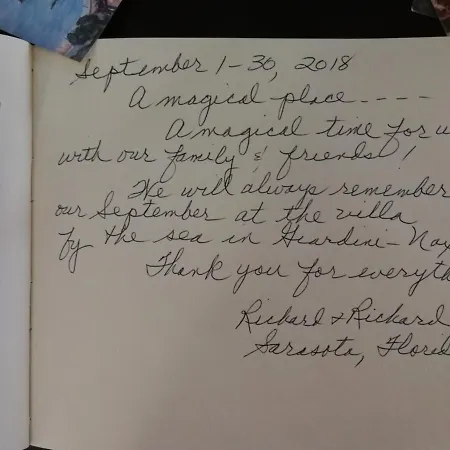 September 1-30, 2018
A magical place ----
A magical time for u
with our family & friends!
We will always remember
our September at the villa
by the sea in Giardini-Nax
Thank you for everyth
Richard & Richard
Sarasota, Florid